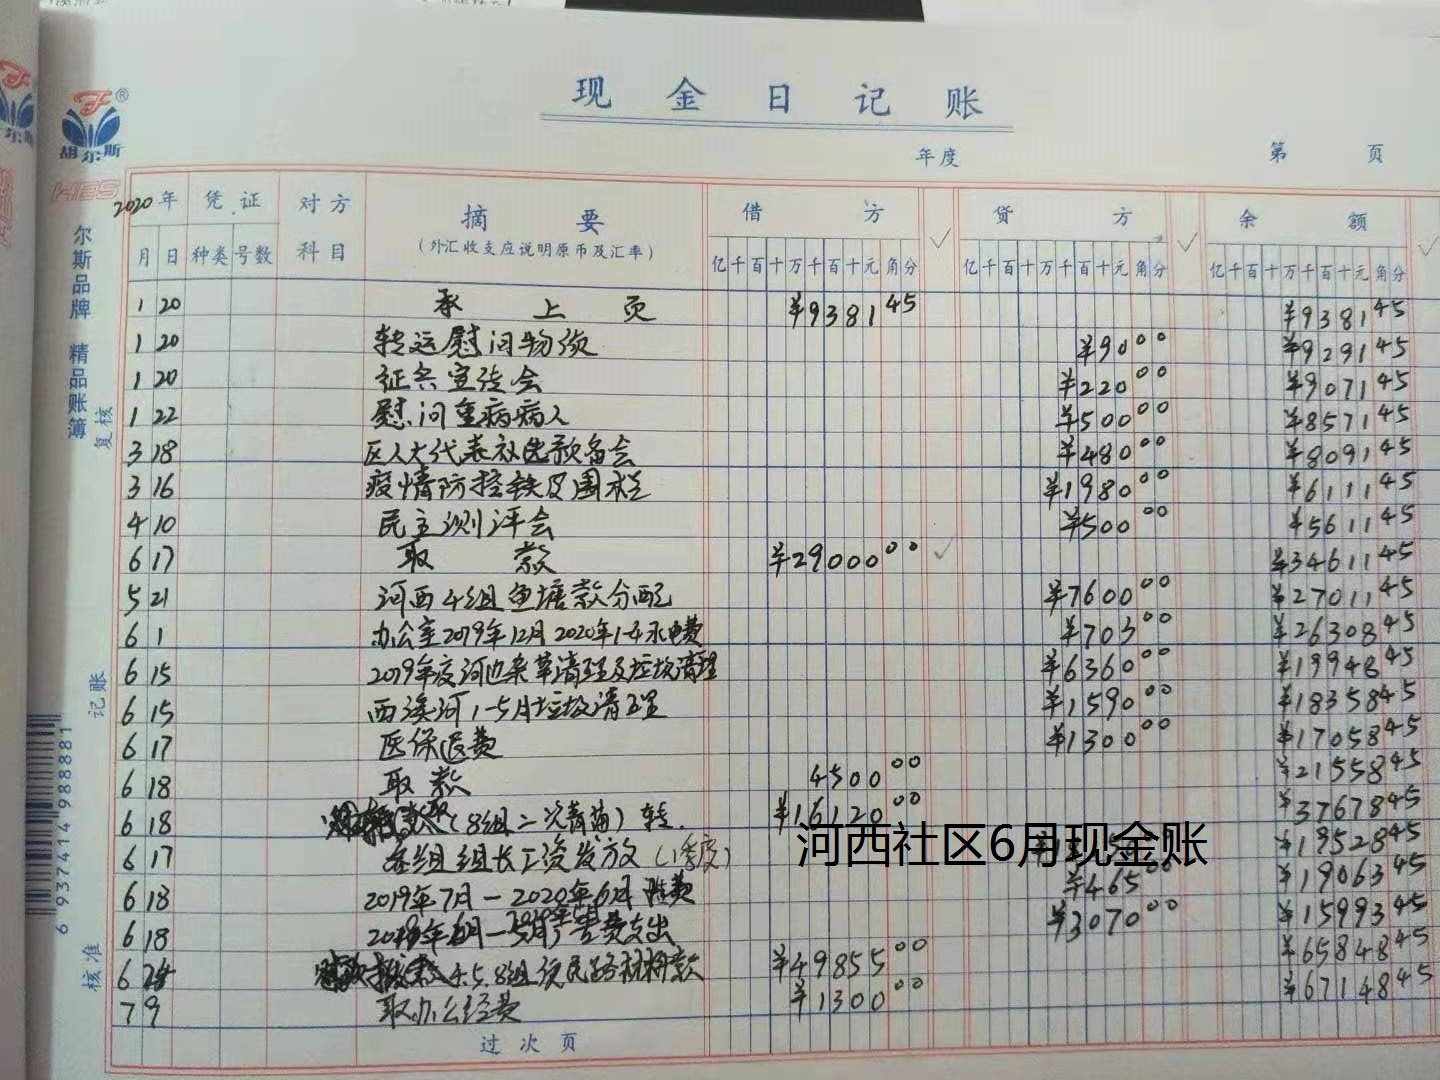 现金日记账
年度 第 页
胡尔斯
HES
尔斯品牌 精品账簿
复核
记账
核准
6 937414 988881
2020年 凭证 对方 摘要 借方 贷方 余额
月 日 种类 号数 科目 (外汇收支应说明原币及汇率) 亿千百十万千百十元角分 亿千百十万千百十元角分 亿千百十万千百十元角分
1 20 承上页 ¥938145 ¥938145
1 20 转运慰问物资 ¥9000 ¥929145
1 20 征兵宣传会 ¥22000 ¥907145
1 22 慰问重病病人 ¥50000 ¥857145
3 18 区人大代表补选款备会 ¥48000 ¥809145
3 16 疫情防控铁皮围栏 ¥198000 ¥611145
4 10 民主测评会 ¥50000 ¥561145
6 17 取款 ¥2900000 ¥3461145
5 21 河西4组鱼塘款分配 ¥760000 ¥2701145
6 1 办公室2019年12月2020年1-4水电费 ¥70300 ¥2630845
6 15 2019年度河边杂草清理及垃圾清理 ¥636000 ¥1994845
6 15 西溪河1-5月垃圾清理 ¥159000 ¥1835845
6 17 医保退费 ¥130000 ¥1705845
6 18 取款 450000 ¥2155845
6 18 (8组二次青苗)转. ¥1612000 ¥3767845
6 17 各组组长工资发放(1季度) ¥1952845
6 18 2019年7月—2020年6月 费 ¥46500 ¥1906345
6 18 告费支出 ¥307000 ¥1599345
6 24 4.5.8组便民路材料款 ¥4985500 ¥6584845
7 9 取办公经费 ¥130000 ¥6714845
过次页
河西社区6月现金账